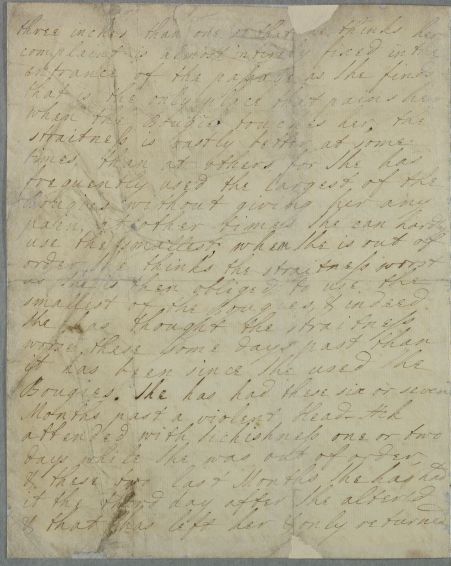 three inches than one so that she thinks her
complaint is almost intirely fixed in the
entrance of the passage as she finds
that is the only place that pains her
when the Bougie touches her, the
straitness is vastly better at some
times, than at others for she has
frequently used the largest, of the
Bougies without giving her any
pain, at other times she can hardly
use the smallest, when she is out of
order she thinks the straitness worst
as she is then obliged to use the
smallest of the Bougies, & indeed
she has thought the straitness
worse these some days past than
it has been since she used the
Bougies. She has had these six or seven
Months past a violent Head Ach
attended with sickishness one or two
days while she was out of order
& these two last Months she has had
it the third day after she altered
& that has left her & only returned